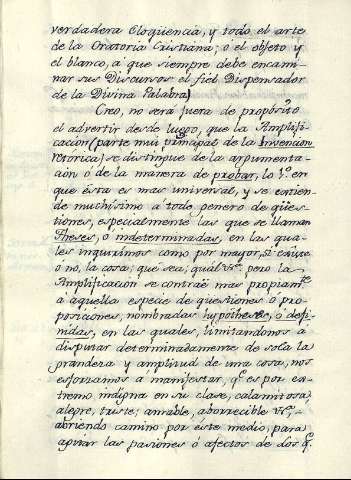 verdadera Eloqüencia, y todo el arte
de la Oratoria Cristiana; o el objeto y
el blanco, a que siempre debe encami-
nar sus Discursos el fiel Dispensador
de la Divina Palabra)
Creo, no será fuera de propósito
el advertir desde luego, que la Amplifi-
cacion (parte mui principal de la Invencion
retorica) se distingue de la argumenta-
cion ó de la manera de probar, lo 1.º en
que ésta es mas universal, y se extien-
de muchísimo a todo genero de qües-
tiones, especialmente las que se llaman
Theses, ó indeterminadas, en las qua-
les inquirimos como por mayor, si existe
o no, la cosa; que sea; quál &c. pero la
Amplificacion se contrae mas propiam.te
a aquella especie de questiones ó pro-
posiciones, nombradas hypótheses, ó defi-
nidas, en las quales, limitandonos a
disputar determinadamente de sola la
grandeza y amplitud de una cosa, nos
esforzamos a manifestar, q.e es por ex-
tremo indigna en su clase, calamitosa,
alegre, triste; amable, aborrecible &c.,
abriendo camino por este medio, para
agitar las pasiones ó afectos de los q.e